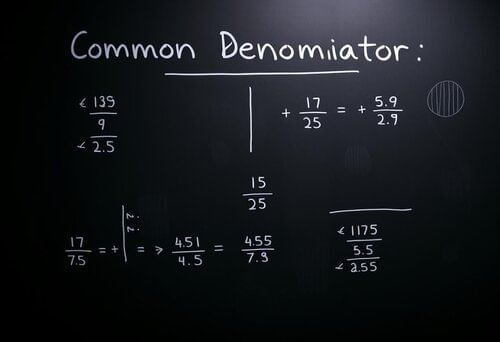 Common Denomiiator:
139
9
2.5
+ 17/25 = + 5.9/2.9
15/25
17/7.5 = + = > 4.51/4.5 = 4.55/7.9
1175
5.5
2.55